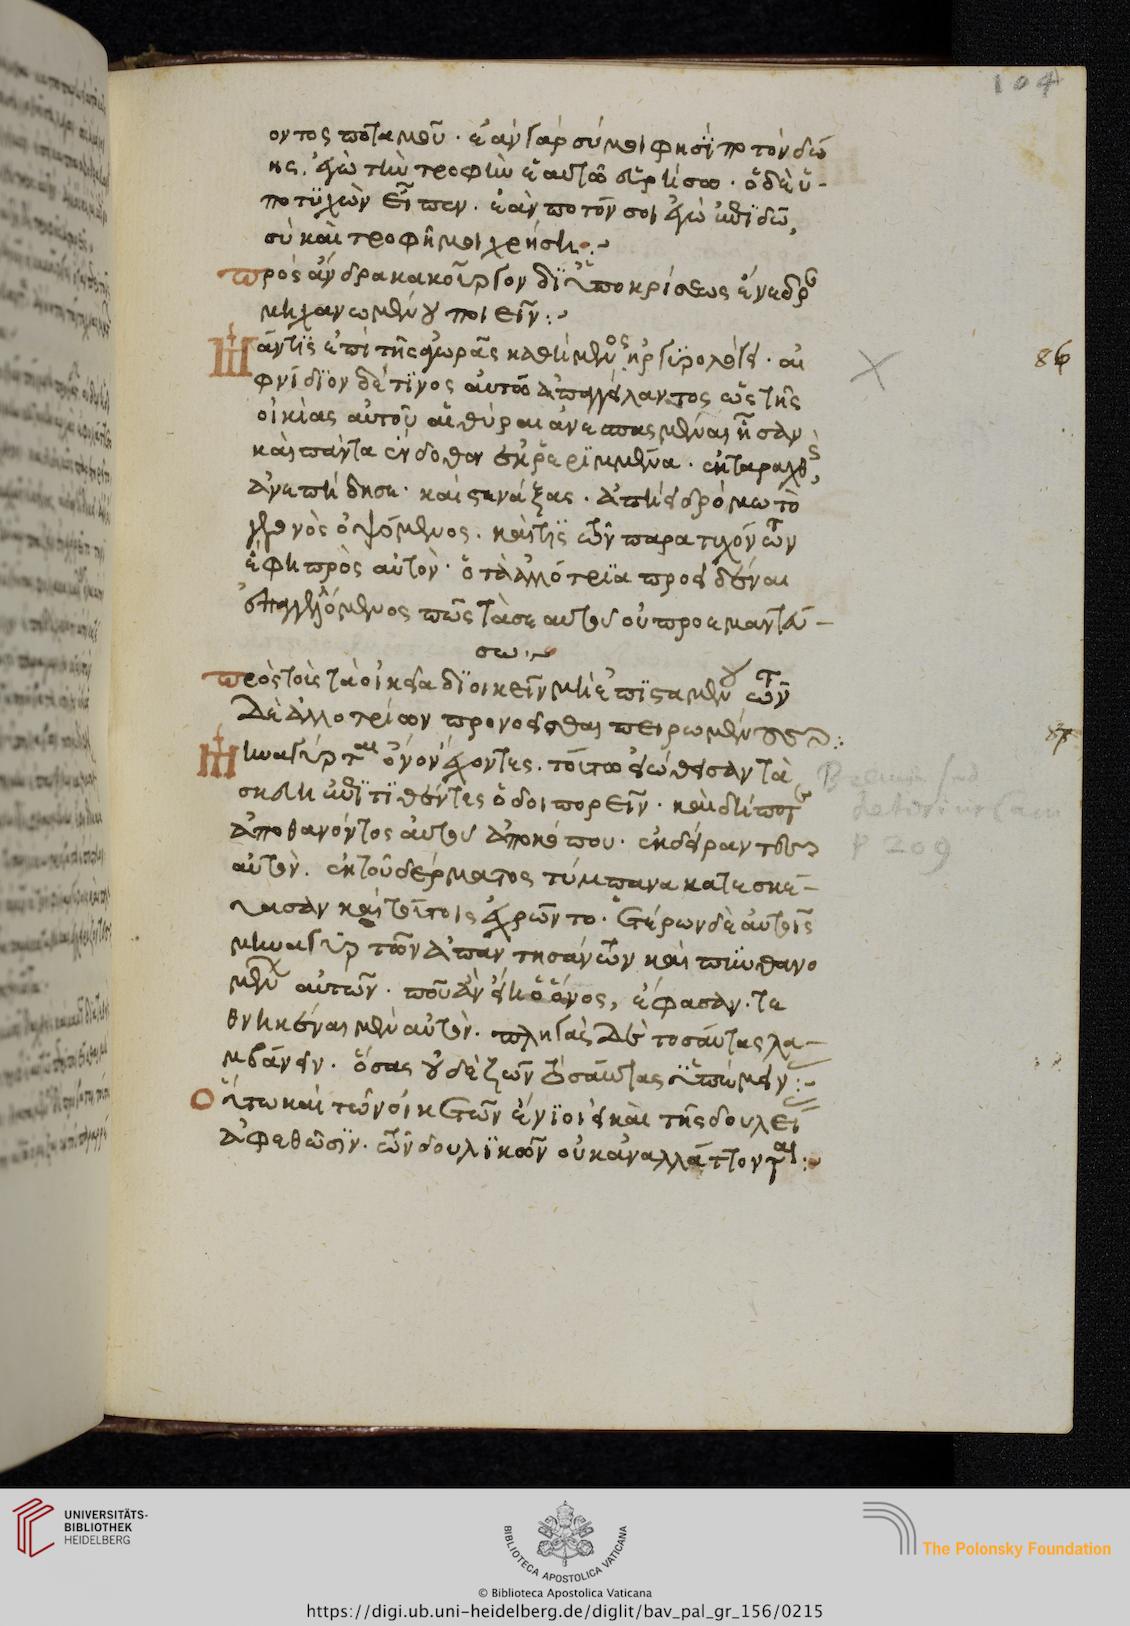 104
οντος ποταμοῦ · ἐὰν γὰρ σύ μοι φησὶ ποτὸν δώ
ης, ἐγὼ τὴν τροφὴν ἑαυτῷ · ὁ δὲ ὑ-
ποτυχὼν εἶπεν · ἐὰν ποτόν σοι ἐγὼ ἐπιδῶ,
σὺ καὶ τροφῇ μοι χρήσῃ :~
πρὸς ἄνδρα κακοῦργον δι' ὑποκρίσεως ἐνεδρ
μηχανωμένου ποιεῖν :~
μάντις ἐπὶ τῆς ἀγορᾶς καθήμενος ἠργυρολόγει · αἰ
φνίδιον δέ τινος αὐτῷ ἀπαγγείλαντος ὡς τῆς
οἰκίας αὐτοῦ αἱ θύραι ἀνεσπασμέναι ἦσαν
καὶ πάντα ἔνδοθεν ἐκ · ἐκταραχθεὶς,
ἀνεπήδησε · καὶ στενάξας · ἀπῄει δρόμῳ τὸ
γεγονὸς ὀψόμενος · καί τις τῶν παρατυχόντων
ἔφη πρὸς αὐτόν · ὁ τὰ ἀλλότρια προειδέναι
ἐπαγγελλόμενος πῶς τὰ σεαυτοῦ οὐ προεμαντεύ-
σω :~
πρὸς τοὺς τὰ οἰκεῖα διοικεῖν μὴ ἐπισταμένους τῶν
δὲ ἀλλοτρίων προνοεῖσθαι πειρωμένους :
86
μηναγύρται ὄνον ἔχοντες · τούτῳ εἰώθεσαν τὰ
σκεύη ἐπιτιθέντες ὁδοιπορεῖν · καὶ δή ποτε
ἀποθανόντος αὐτοῦ ἀπὸ κόπου · ἐκδείραντες
αὐτόν · ἐκ τοῦ δέρματος τύμπανα κατεσκεύ-
ασαν καὶ τούτοις ἐχρῶντο · ἑτέρων δὲ αὐτοῖς
μηναγυρτῶν ἀπαντησάντων καὶ πυνθανο
μένων αὐτῶν · ποῦ ἂν εἴη ὁ ὄνος, ἔφασαν · τε
θνηκέναι μὲν αὐτόν · πληγὰς δὲ τοσαύτας λα-
μβάνειν · ὅσας οὐδὲ ζῶν :~
οὕτω καὶ τῶν οἰκετῶν ἔνιοι εἰ καὶ τῆς δουλεί
ἀφεθῶσιν · τῶν δουλικῶν οὐκ ἀναλλάττονται :~
87
p 209
UNIVERSITÄTS-
BIBLIOTHEK
HEIDELBERG
BIBLIOTECA APOSTOLICA VATICANA
© Biblioteca Apostolica Vaticana
https://digi.ub.uni-heidelberg.de/diglit/bav_pal_gr_156/0215
The Polonsky Foundation